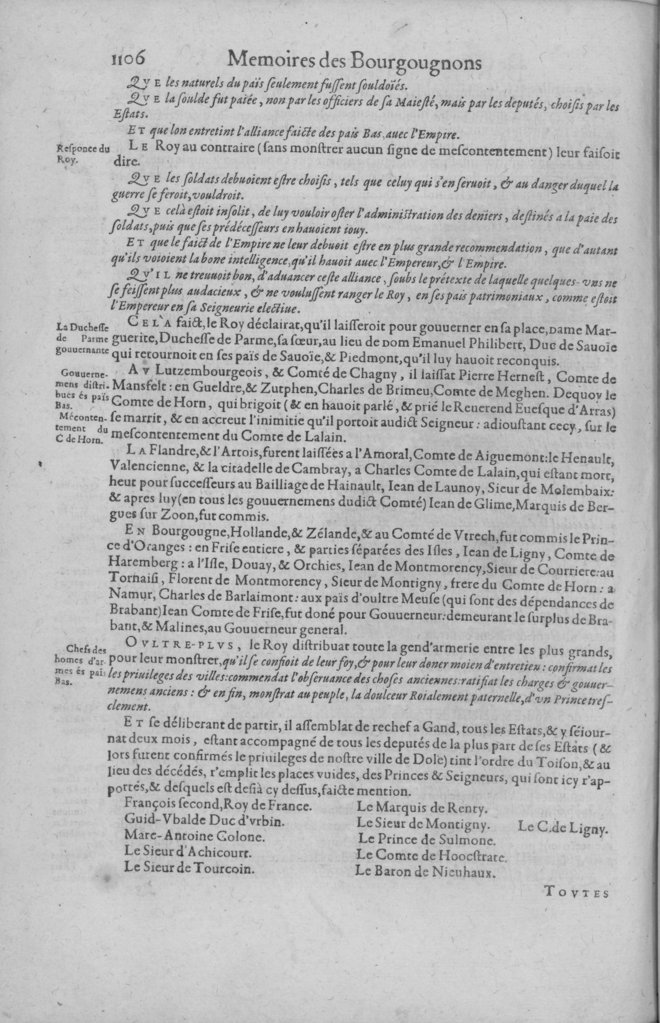 1106 Memoires des Bourgougnons
QVE les naturels du païs ſeulement fuſſent ſouldoïés.
QVE la ſoulde fut païée, non par les officiers de ſa Maieſté, mais par les deputés, choiſis par les
Eſtats.
ET que lon entretint l'alliance faicte des païs Bas, auec l'Empire.
Reſponce du
Roy.
LE Roy au contraire (ſans monſtrer aucun ſigne de meſcontentement) leur faiſoit
dire.
QVE les ſoldats debuoient eſtre choiſis, tels que celuy qui s'en ſeruoit, & au danger duquel la
guerre ſe feroit, vouldroit.
QVE celà eſtoit inſolit, de luy vouloir oſter l'adminiſtration des deniers, deſtinés a la paie des
ſoldats, puis que ſes prédéceſſeurs en hauoient iouy.
ET que le faict de l'Empire ne leur debuoit eſtre en plus grande recommendation, que d'autant
qu'ils voioient la bone intelligence, qu'il hauoit auec l'Empereur, & l'Empire.
QV'IL ne treuuoit bon, d'aduancer ceſte alliance, ſoubs le prétexte de laquelle quelques-vns ne
ſe feiſſent plus audacieux, & ne vouluſſent ranger le Roy, en ſes païs patrimoniaux, comme eſtoit
l'Empereur en ſa Seigneurie electiue.
La Ducheſſe
de Parme
gouuernante
CELA faict, le Roy déclairat, qu'il laiſſeroit pour gouuerner en ſa place, DAME Mar-
guerite, Ducheſſe de Parme, ſa ſœur, au lieu de DOM Emanuel Philibert, Duc de Sauoïe
qui retournoit en ſes païs de Sauoïe, & Piedmont, qu'il luy hauoit reconquis.
Gouuerne-
mens diſtri-
bues és païs
Bas.
Méconten-
tement du
C de Horn.
AV Lutzembourgeois, & Comté de Chagny, il laiſſat Pierre Herneſt, Comte de
Mansfelt: en Gueldre, & Zutphen, Charles de Brimeu, Comte de Meghen. Dequoy le
Comte de Horn, qui brigoit (& en hauoit parlé, & prié le Reuerend Eueſque d'Arras)
ſe marrit, & en accreut l'inimitie qu'il portoit audict Seigneur: adiouſtant cecy, ſur le
meſcontentement du Comte de Lalain.
LA Flandre, & l'Artois, furent laiſſées a l'Amoral, Comte de Aiguemont: le Henault,
Valencienne, & la citadelle de Cambray, a Charles Comte de Lalain, qui eſtant mort,
heut pour ſucceſſeurs au Bailliage de Hainault, Iean de Launoy, Sieur de Molembaix:
& apres luy (en tous les gouuernemens dudict Comté) Iean de Glime, Marquis de Ber-
gues ſur Zoon, fut commis.
EN Bourgougne, Hollande, & Zélande, & au Comté de Vtrech, fut commis le Prin-
ce d'Oranges: en Friſe entiere, & parties ſéparées des Iſles, Iean de Ligny, Comte de
Haremberg: a l'Iſle, Douay, & Orchies, Iean de Montmorency, Sieur de Courriere: au
Tornaiſi, Florent de Montmorency, Sieur de Montigny, frere du Comte de Horn: a
Namur, Charles de Barlaimont: aux païs d'oultre Meuſe (qui ſont des dépendances de
Brabant) Iean Comte de Friſe, fut doné pour Gouuerneur: demeurant le ſurplus de Bra-
bant, & Malines, au Gouuerneur general.
Chefs des
homes d'ar-
mes és païs
Bas.
OVLTRE-PLVS, le Roy diſtribuat toute la gend'armerie entre les plus grands,
pour leur monſtrer, qu'il ſe confioit de leur foy, & pour leur doner moien d'entretien: confirmat les
les priuileges des villes: commendat l'obſeruance des choſes anciennes: ratifiat les charges & gouuer-
nemens anciens: & en fin, monſtrat au peuple, la doulceur Roialement paternelle, d'vn Prince treſ-
clement.
ET ſe déliberant de partir, il aſſemblat de rechef a Gand, tous les Eſtats, & y ſéiour-
nat deux mois, eſtant accompagné de tous les deputés de la plus part de ſes Eſtats (&
lors furent confirmés le priuileges de noſtre ville de Dole) tint l'ordre du Toiſon, & au
lieu des décédés, r'emplit les places vuides, des Princes & Seigneurs, qui ſont icy r'ap-
portés, & deſquels eſt deſià cy deſſus, faicte mention.
François ſecond, Roy de France.
Guid-Vbalde Duc d'vrbin.
Marc-Antoine Colone.
Le Sieur d'Achicourt.
Le Sieur de Tourcoin.
Le Marquis de Renty.
Le Sieur de Montigny.
Le Prince de Sulmone.
Le Comte de Hoocſtrate.
Le Baron de Nieuhaux.
Le C. de Ligny.
TOVTES